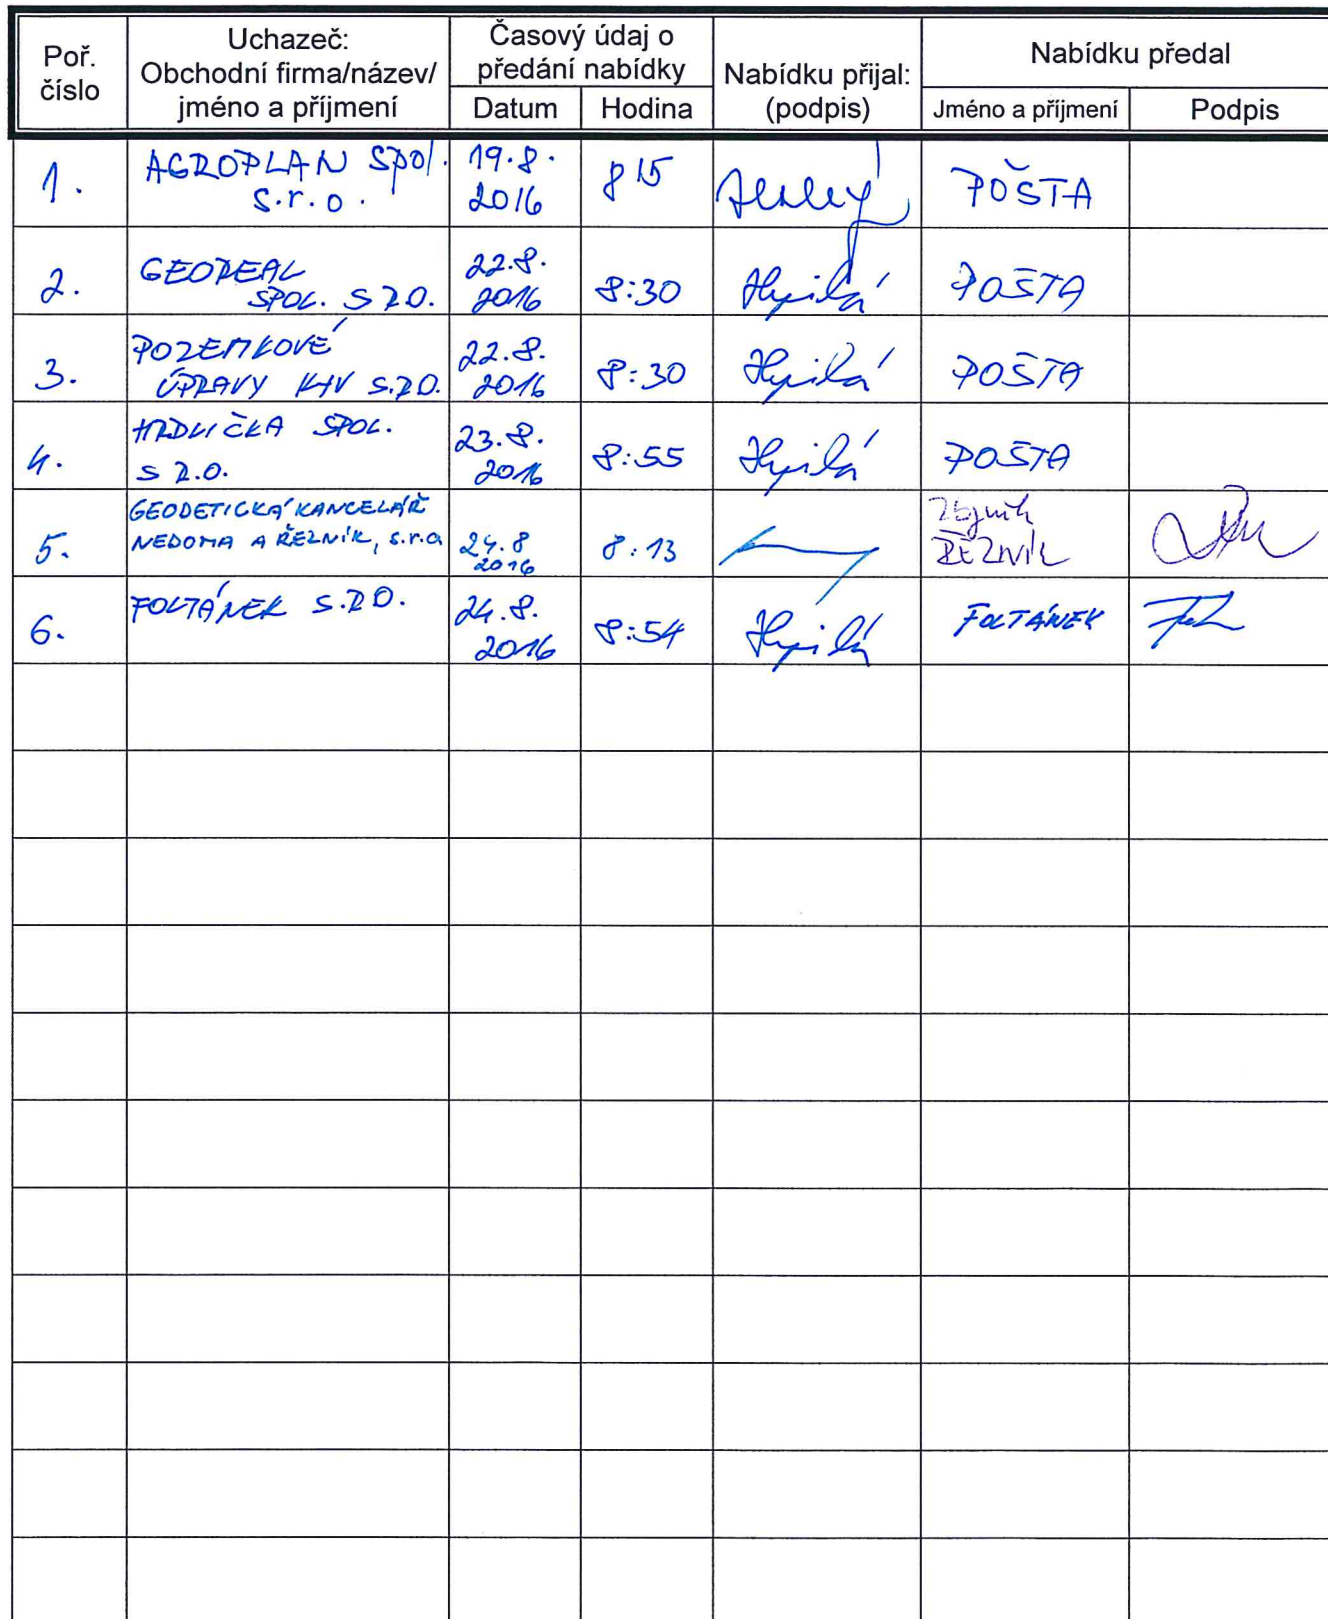 Poř. číslo
Uchazeč:
Obchodní firma/název/
jméno a příjmení
Časový údaj o
předání nabídky
Datum
Hodina
Nabídku přijal:
(podpis)
Nabídku předal
Jméno a příjmení
Podpis
1.
AGROPLAN spol.
s.r.o.
19.8.
2016
8 15
POŠTA
2.
GEOREAL
SPOL. S R.O.
22.8.
2016
8:30
POŠTA
3.
POZEMKOVÉ
ÚPRAVY KHV S.R.O.
22.8.
2016
8:30
POŠTA
4.
HRDLIČKA SPOL.
S R.O.
23.8.
2016
8:55
POŠTA
5.
GEODETICKÁ KANCELÁŘ
NEDOMA A ŘEZNÍK, s.r.o
24.8
2016
8:13
Zbyněk
ŘEZNÍK
6.
FOLTÁNEK S.R.O.
24.8.
2016
8:54
FOLTÁNEK